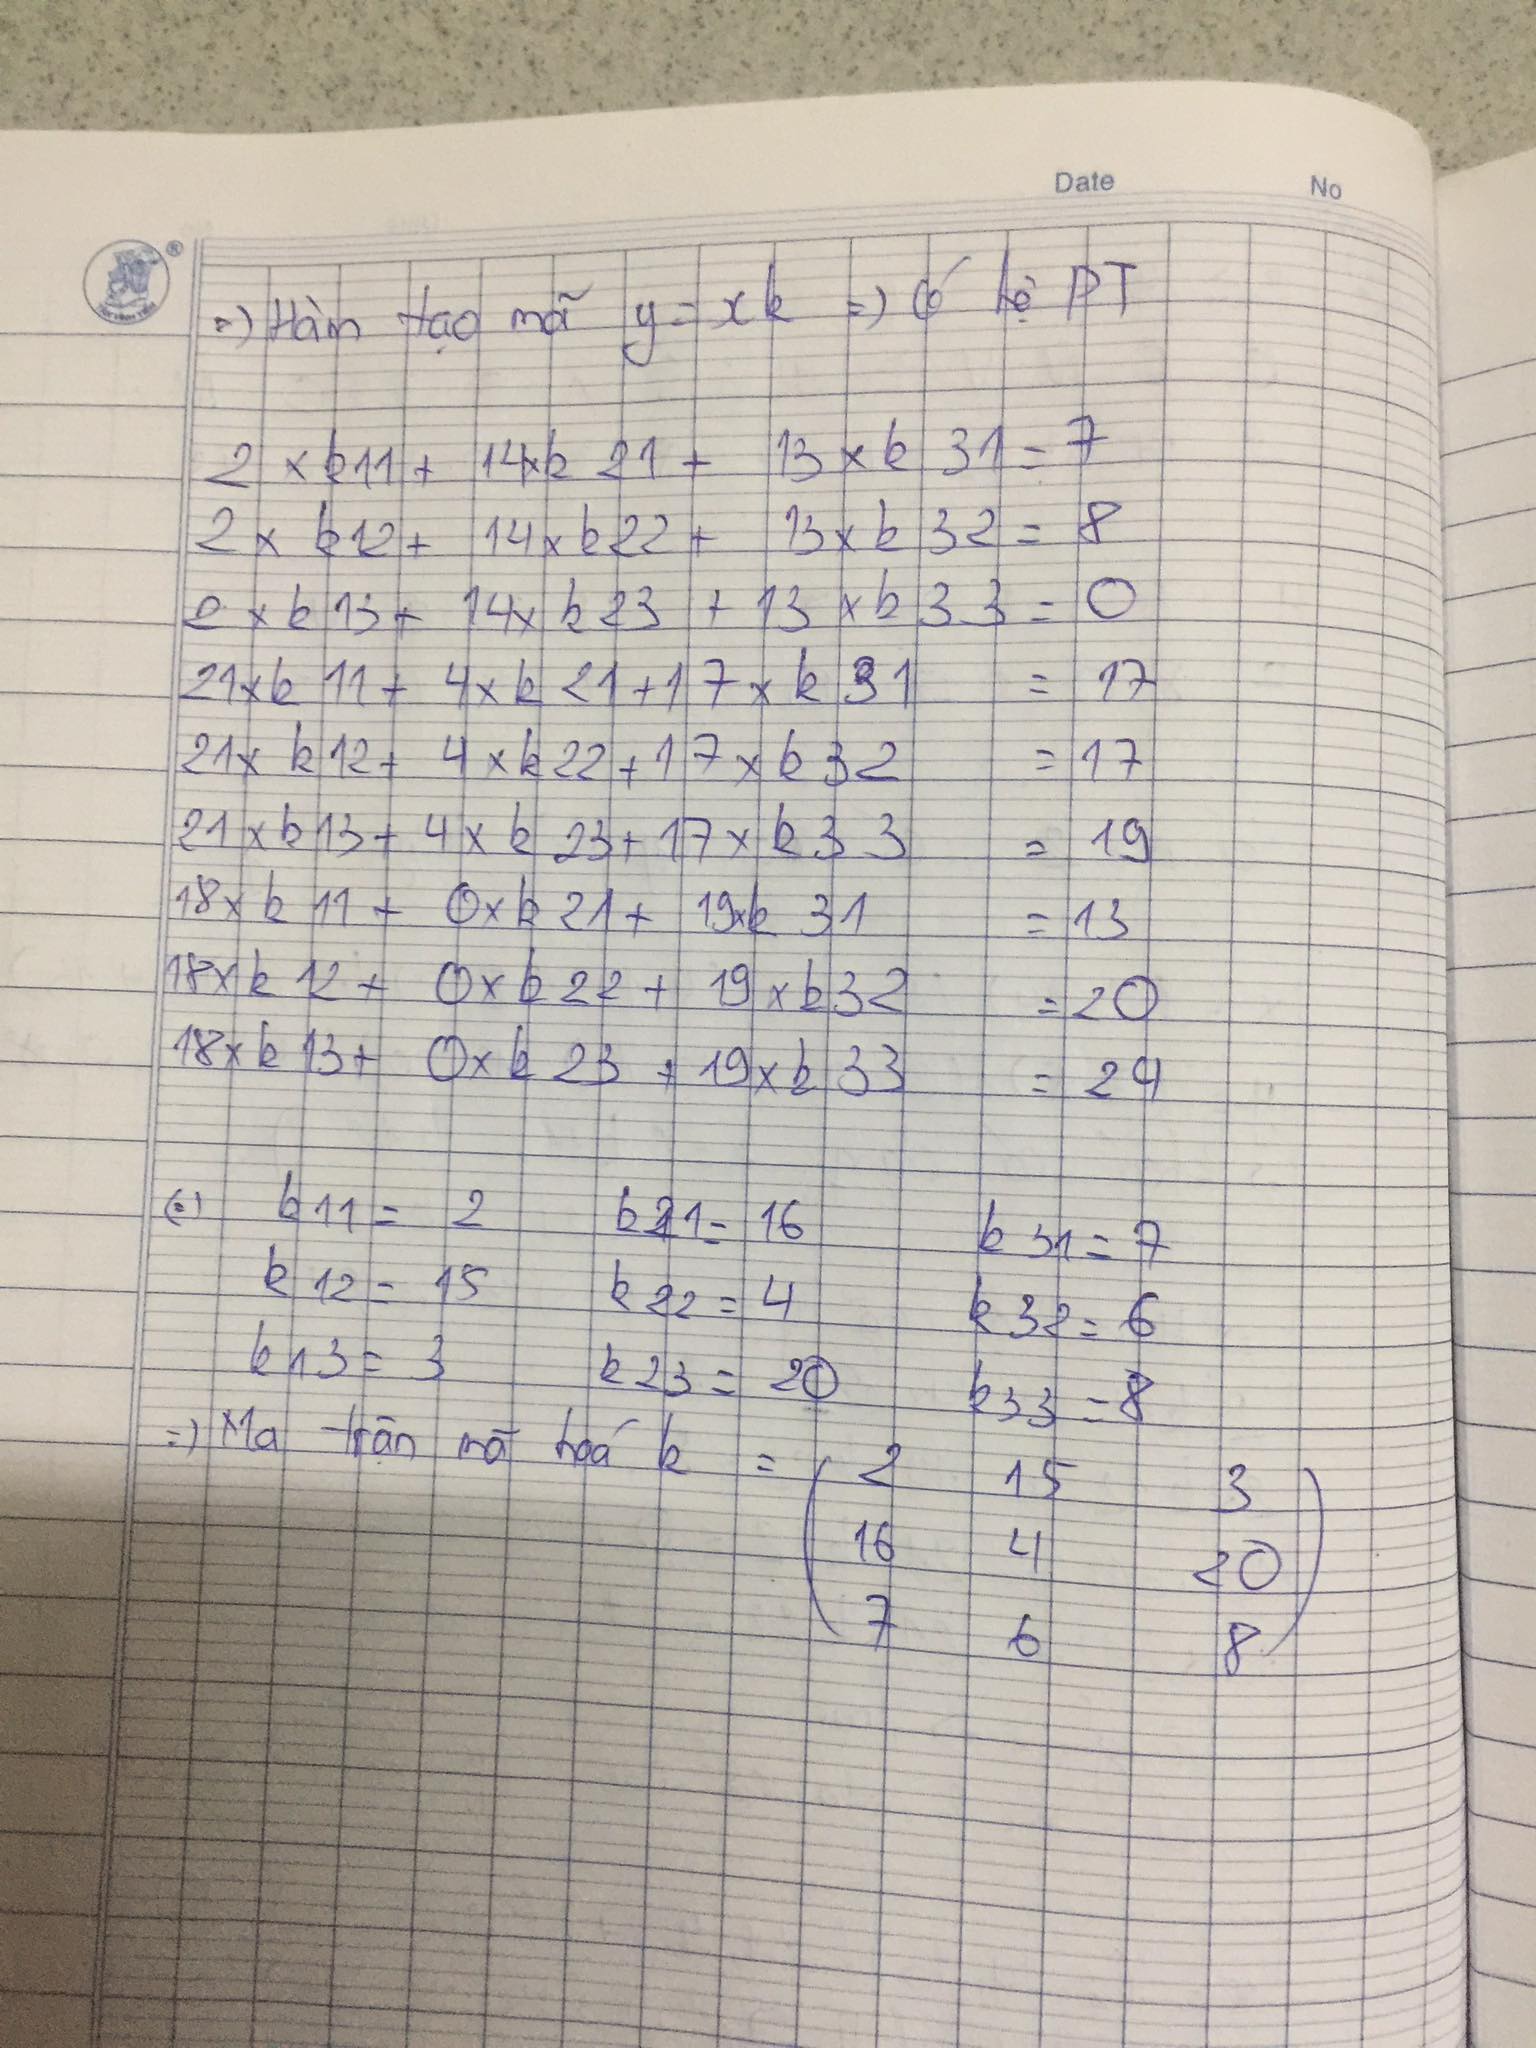 Date No
=) Hàm tạo mã y = xk =) Có hệ PT
2 x k11 + 14 x k21 + 13 x k31 = 7
2 x k12 + 14 x k22 + 13 x k32 = 8
2 x k13 + 14 x k23 + 13 x k33 = 0
21 x k11 + 4 x k21 + 17 x k31 = 17
21 x k12 + 4 x k22 + 17 x k32 = 17
21 x k13 + 4 x k23 + 17 x k33 = 19
18 x k11 + 0 x k21 + 19 x k31 = 13
18 x k12 + 0 x k22 + 19 x k32 = 20
18 x k13 + 0 x k23 + 19 x k33 = 24
(=) k11 = 2 k21 = 16 k31 = 7
k12 = 15 k22 = 4 k32 = 6
k13 = 3 k23 = 20 k33 = 8
=) Ma trận mã hoá k = ( 2 15 3
16 4 20
7 6 8 )